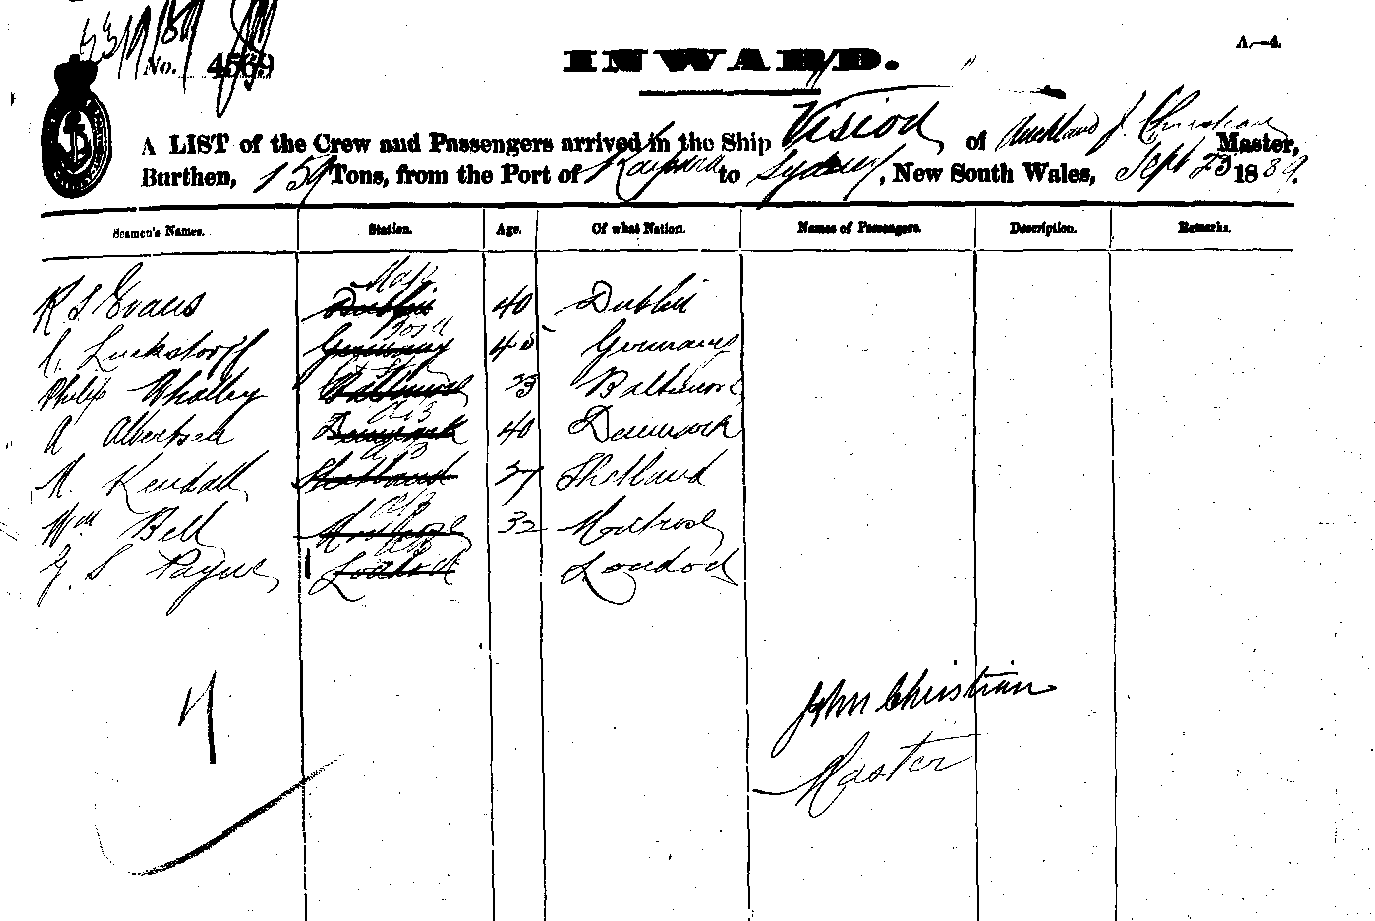 23/9/89
A.—4.
No. 4569
INWARD.
A LIST of the Crew and Passengers arrived in the Ship Vision of Auckland J. Christian Master,
Burthen, 159 Tons, from the Port of Kaipara to Sydney, New South Wales, Sept 23 1889.
Seamen's Names. Station. Age. Of what Nation. Names of Passengers. Description. Remarks.
R S Evans Mate Dublin 40 Dublin
C. Luckstorff Bosn Germany 45 Germany
Philip Whalley Baltimore 33 Baltimore
A Albertsen AB Denmark 40 Denmark
M. Kendall AB Shetland 27 Shetland
Wm Bell AB Montrose 32 Montrose
G. S. Payne London London
7
John Christian
Master